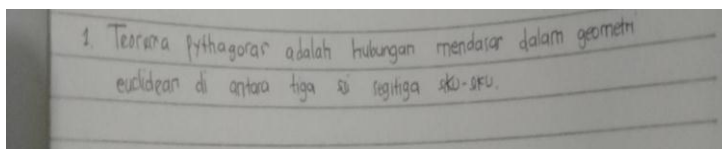 1. Teorema pythagoras adalah hubungan mendasar dalam geometri
euclidean di antara tiga sisi segitiga siku-siku.